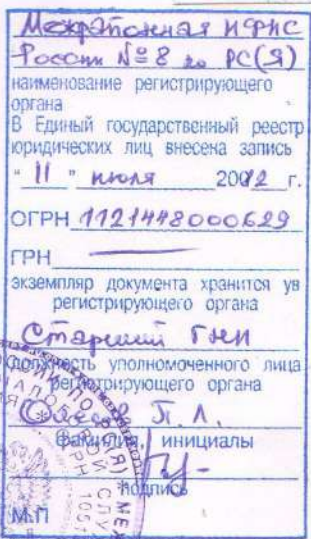 Межрайонная ИФНС
России №8 по РС(Я)
наименование регистрирующего
органа
В Единый государственный реестр
юридических лиц внесена запись
"11" июля 20012 г.
ОГРН 1121448000629
ГРН
экземпляр документа хранится ув
регистрирующего органа
Старший ГНИ
должность уполномоченного лица
регистрирующего органа
П. Л.
фамилия, инициалы
подпись
М.П